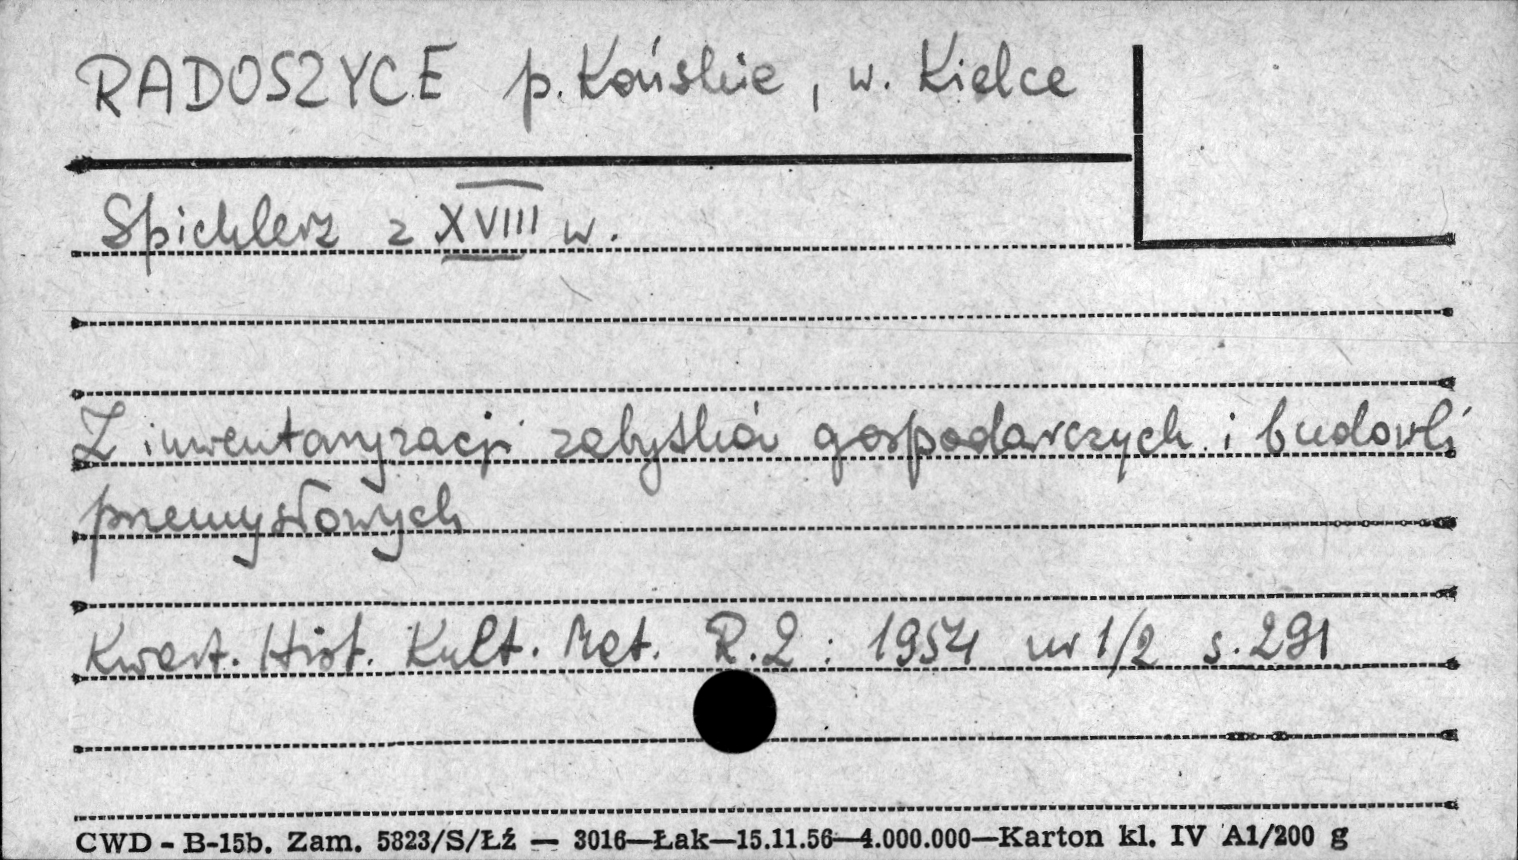 RADOSZYCE p. Końskie, w. Kielce
Spichlerz z XVIII w.
Z inwentaryzacji zabytków gospodarczych i budowli
przemysłowych
Kwart. Hist. Kult. Mat. R. 2 : 1954 nr 1/2 s. 291
CWD - B-15b. Zam. 5823/S/Łź — 3016—Łak—15.11.56—4.000.000—Karton kl. IV A1/200 g